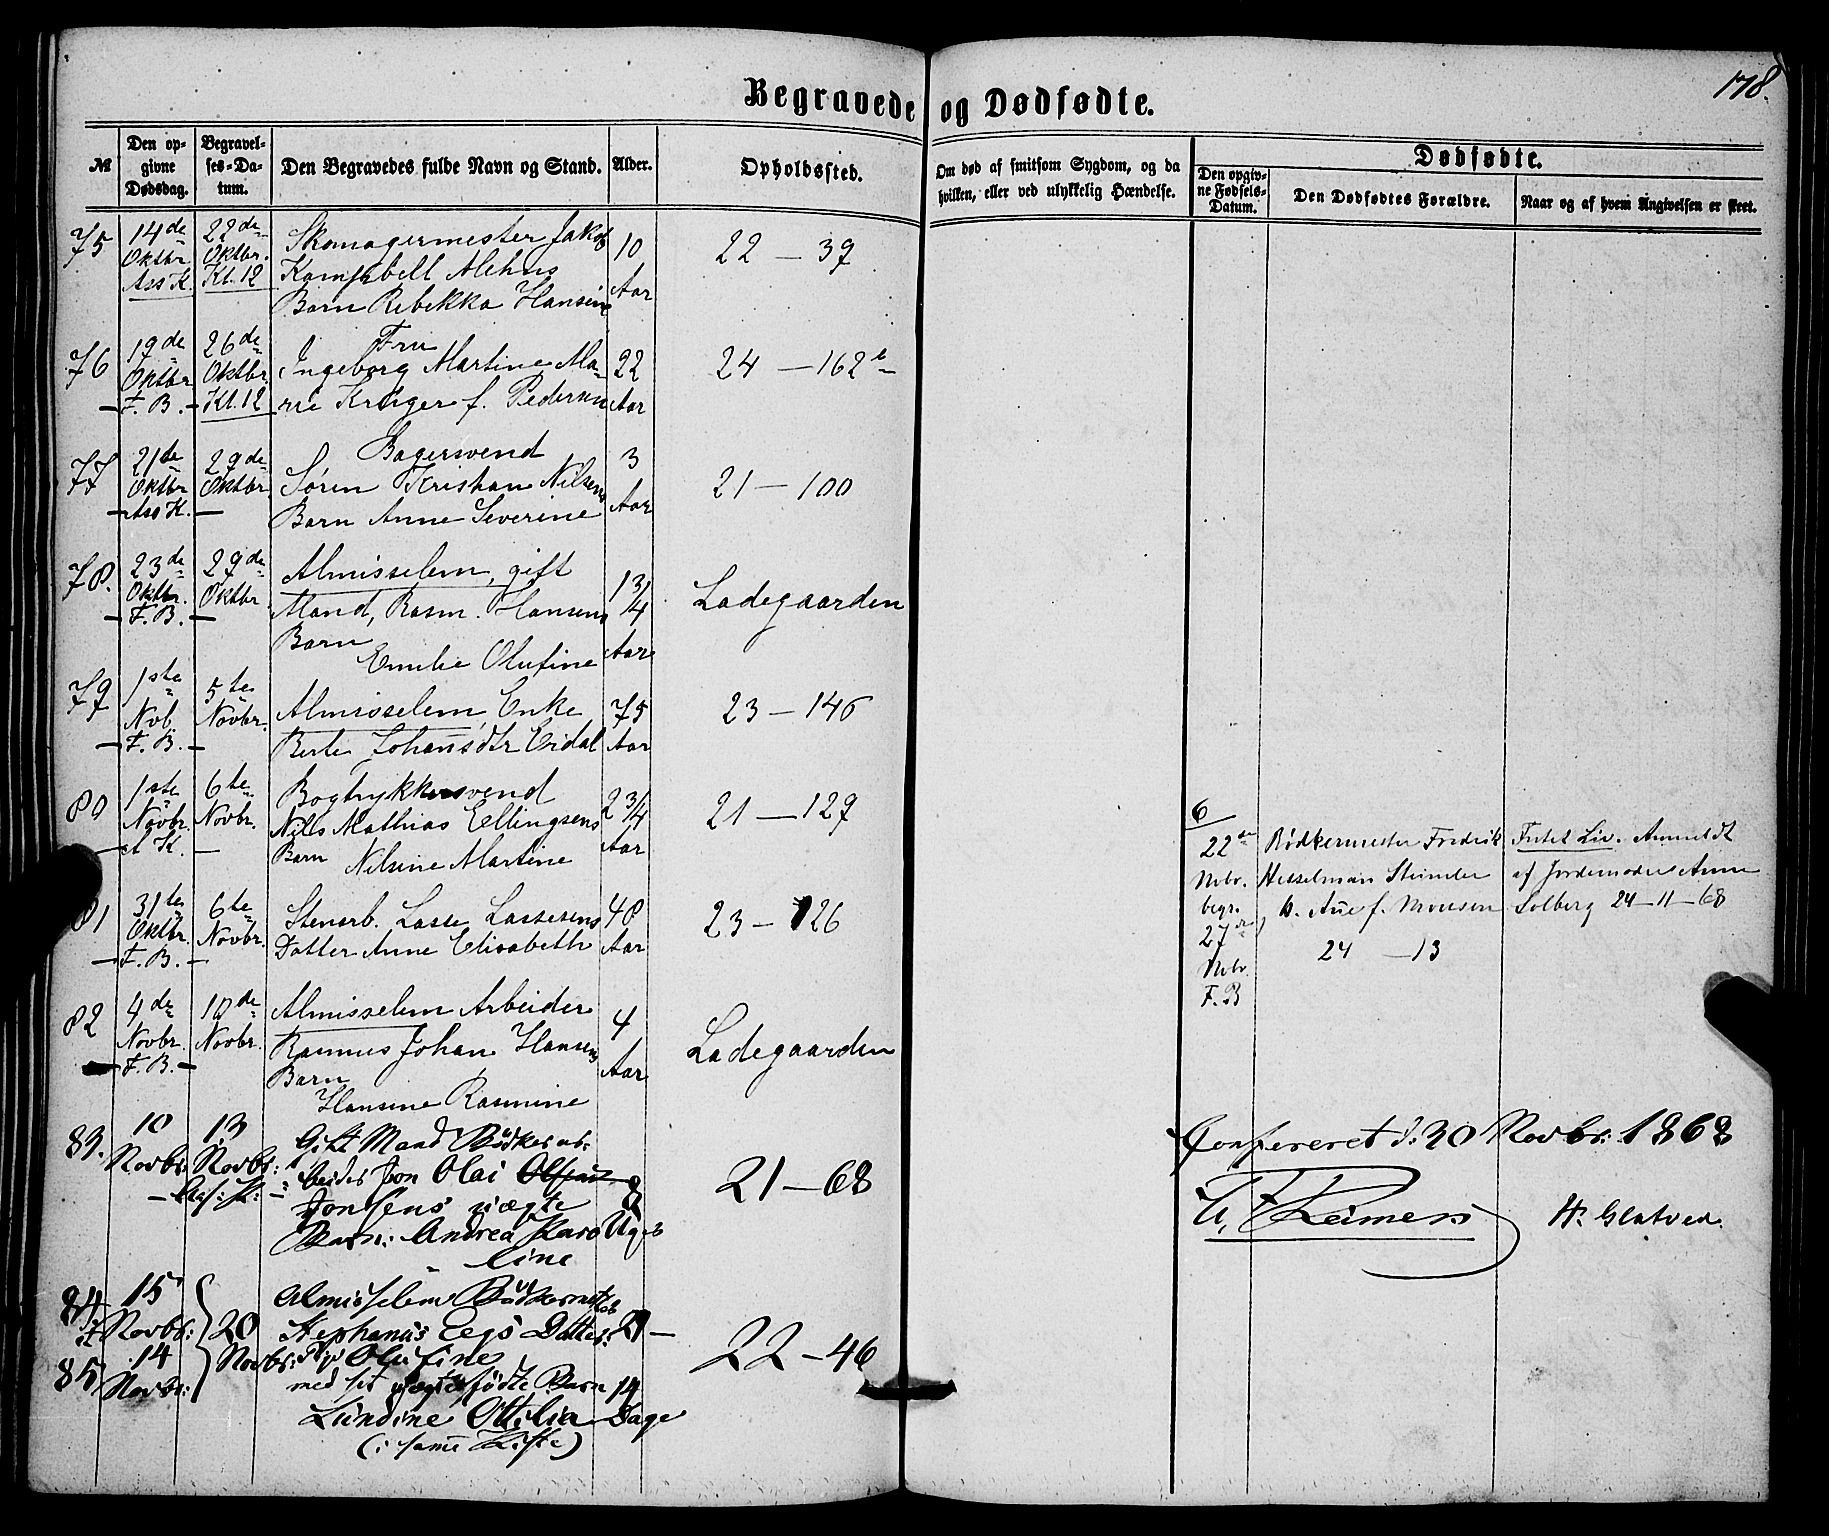 Begravede og Dødfødte.
178.
№ Den opgivne Dødsdag. Begravelses-Datum. Den Begravedes fulde Navn og Stand. Alder. Opholdssted.
Om død af smitsom Sygdom, og da hvilken, eller ved ulykkelig Hændelse.
Dødfødte.
Den opgivne Fødsels-Datum. Den Dødfødtes Forældre. Naar og af hvem Angivelsen er skeet.
75 14de 22de Skomagermester Jakob 10 22 — 39
Oktbr Oktbr. Kampbell Alehns Aar
Ass K. Kl. 12 Barn Rebekka Hansine
76 19de 26de Fru
Oktbr Oktbr. Ingeborg Martine Ma- 22 24 — 162b
F. B. Kl. 12 rie Krüger f. Pedersen Aar
77 21de 29de Bagersvend 3
Oktbr Oktbr Søren Kristian Nilsens 21 — 100
Ass K. — Barn Anne Severine Aar
78. 23de 29de Almisselem, gift 1 3/4 Ladegaarden
Oktbr. Oktbr Mand, Rasm. Hansens
F. B. — Barn
Emilie Olufine Aar
79 1ste 5te Almisselem, Enke 75 23 — 146
Nvb. Novbr. Berte Johansdtr Eidal Aar
F. B. —
80 1ste 6te Bogtrykkersvend 2 3/4 21 — 129
Novbr. Novbr. Nils Mathias Ellingsens
A K. — Barn Nilsine Martine Aar
81 31te 6te Stenarb. Lasse Lassesens 48 23 — 126
Oktbr. Novbr. Datter Anne Elisabeth Aar
F. B. —
82 4de 10de Almisselem Arbeider 4 Ladegaarden
Novbr. Novbr. Rasmus Johan Hansens
F. B. — Barn Aar
Hansine Rasmine
83. 10 13 Gift Mand Bødkerar-
Novbr. Novbr: beider Jon Olai Olsen 21 — 68
— Ass: K: — Jonsens uægte 8
Barn: Andrea Karo Uger
line
84 15 Almisselem Bødkermester
Novbr: 20 Stephanus Eegs Datter: 21 —
85 14 Novbr: Olufine 22 — 46
Novbr: med sit uægtefødte Barn 14
Lundine Ottilia Dage
(i samme Kiste)
6
22de Bødkermester Fredrik Frita Liv. Anmeldt
Nvbr. Hesselman Steinder af Jordemoder Anne
begr. f. Monsen Solberg 24—11—68
27de 24 — 13
Nvbr.
F. B
Confereret d: 30 Novbr: 1868
Reimers H. Glatved.